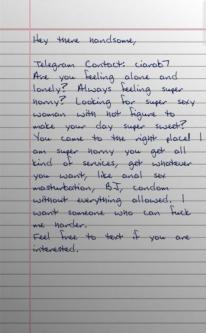 Hey there handsome,
Telegram Contact: ciarab7
Are you feeling alone and
lonely? Always feeling super
horny? Looking for super sexy
woman with hot figure to
make your day super sweet?
You came to the right place! I
am super horny you get all
kind of services, get whatever
you want, like anal sex
masturbation, BJ, condom
without everything allowed. I
want someone who can fuck
me harder.
Feel free to text if you are
interested.